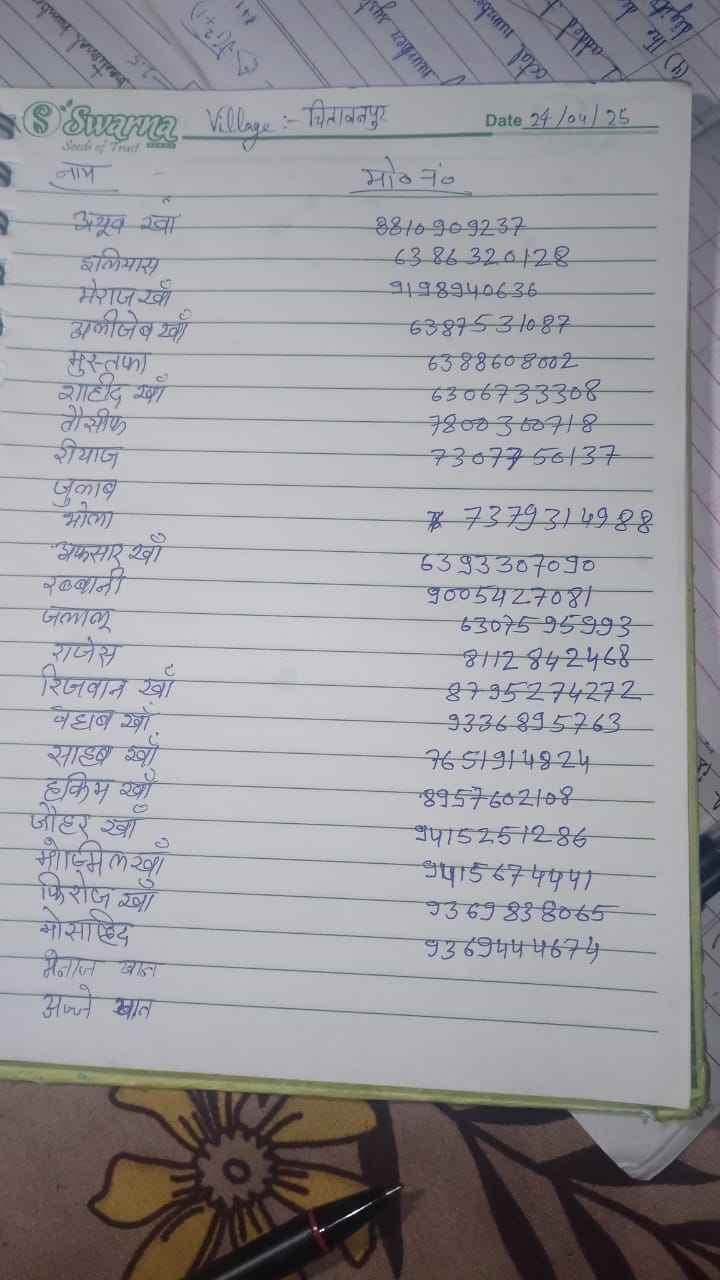 Swarna
Seeds of Trust
Village :- चितावनपुर
Date 24/04/25
नाम - मो० नं०
अयूव खाँ 8810909237
इलियास 6386320128
मेराज खाँ 9198940636
अलीजेब खाँ 6387531087
मुस्तफा 6388608002
शाहीद खाँ 6306733308
तौसीफ 7800300718
रीयाज 7307750137
जुलाब
भोला 7379314988
अफसार खाँ 6393307090
रब्बानी 9005427081
जलालू 6307595993
राजेस 8112842468
रिजवान खाँ 8795274272
वेहाब खाँ 9336895763
साहब खाँ 7651914824
हकिम खाँ 8957602108
जौहर खाँ 9415251286
मोज्मिल खाँ 9415674441
फिरोज खाँ 9369838065
मोसाहिद 9369444674
मेनाज खान
अज्जे खान